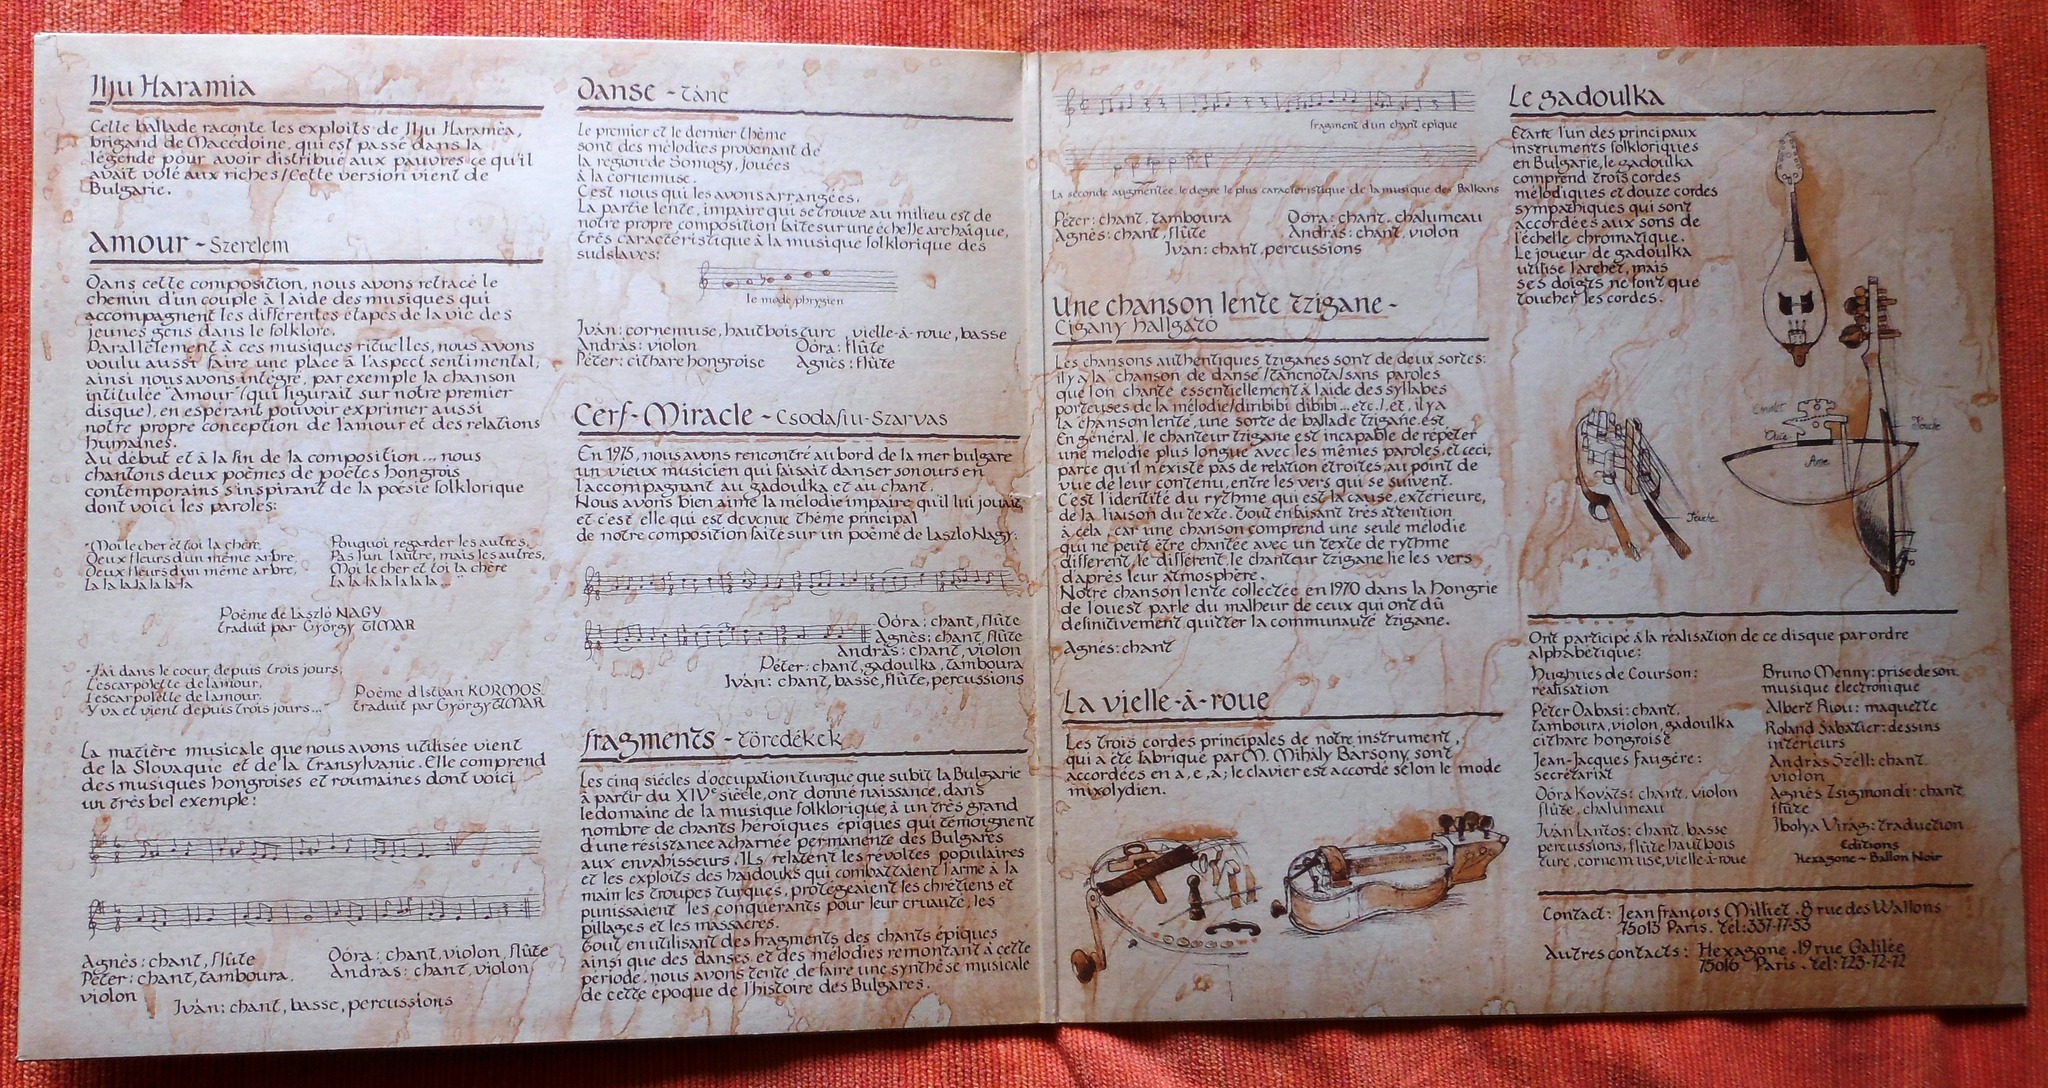 Ilju Haramia
Cette ballade raconte les exploits de Ilju Haramèa,
brigand de Macédoine, qui est passé dans la
légende pour avoir distribué aux pauvres ce qu'il
avait volé aux riches/Cette version vient de
Bulgarie.
Amour - Szerelem
Dans cette composition, nous avons retracé le
chemin d'un couple à l'aide des musiques qui
accompagnent les différentes étapes de la vie des
jeunes gens dans le folklore.
Parallèlement à ces musiques rituelles, nous avons
voulu aussi faire une place à l'aspect sentimental,
ainsi nous avons intégré, par exemple la chanson
intitulée "Amour" (qui figurait sur notre premier
disque), en espérant pouvoir exprimer aussi
notre propre conception de l'amour et des relations
humaines.
Au début et à la fin de la composition... nous
chantons deux poèmes de poètes hongrois
contemporains s'inspirant de la poésie folklorique
dont voici les paroles:
"Moi le cher et toi la chère,
Deux fleurs d'un même arbre,
Deux fleurs d'un même arbre,
La la la la la la la
Pouquoi regarder les autres,
Pas l'un l'autre, mais les autres,
Moi le cher et toi la chère
La la la la la la la..."
Poème de László NAGY
traduit par György TIMAR
"J'ai dans le cœur depuis trois jours,
L'escarpolette de l'amour,
L'escarpolette de l'amour,
Y va et vient depuis trois jours..."
Poème d'Istvan KORMOS
traduit par György TIMAR
La matière musicale que nous avons utilisée vient
de la Slovaquie et de la Transylvanie. Elle comprend
des musiques hongroises et roumaines dont voici
un très bel exemple:
Agnès: chant, flûte
Dóra: chant, violon, flûte
Péter: chant, tamboura,
violon
András: chant, violon
Iván: chant, basse, percussions
Danse - Tánc
Le premier et le dernier thème
sont des mélodies provenant de
la région de Somogy, jouées
à la cornemuse.
C'est nous qui les avons arrangées.
La partie lente, impaire qui se trouve au milieu est de
notre propre composition faite sur une échelle archaïque,
très caractéristique à la musique folklorique des
sudslaves:
le mode phrygien
Iván: cornemuse, hautbois turc, vielle-à-roue, basse
András: violon
Dóra: flûte
Péter: cithare hongroise
Agnès: flûte
Cerf-Miracle - Csodafiu-Szarvas
En 1975, nous avons rencontré au bord de la mer bulgare
un vieux musicien qui faisait danser son ours en
l'accompagnant au gadoulka et au chant.
Nous avons bien aimé la mélodie impaire qu'il lui jouait
et c'est elle qui est devenue thème principal
de notre composition faite sur un poème de Laszlo Nagy:
Dóra: chant, flûte
Agnès: chant, flûte
András: chant, violon
Péter: chant, gadoulka, tamboura
Iván: chant, basse, flûte, percussions
Fragments - Töredékek
Les cinq siècles d'occupation turque que subit la Bulgarie
à partir du XIVe siècle, ont donné naissance, dans
le domaine de la musique folklorique, à un très grand
nombre de chants héroïques épiques qui témoignent
d'une résistance acharnée permanente des Bulgares
aux envahisseurs. ILs relatent les révoltes populaires
et les exploits des haïdouks qui combattaient l'arme à la
main les troupes turques, protégeaient les chrétiens et
punissaient les conquérants pour leur cruauté, les
pillages et les massacres.
Tout en utilisant des fragments des chants épiques
ainsi que des danses et des mélodies remontant à cette
période, nous avons tenté de faire une synthèse musicale
de cette époque de l'histoire des Bulgares.
fragment d'un chant épique
La seconde augmentée, le degré le plus caractéristique de la musique des Balkans
Péter: chant, tamboura
Dóra: chant, chalumeau
Agnès: chant, flûte
András: chant, violon
Iván: chant, percussions
Une chanson lente tzigane -
Cigany hallgató
Les chansons authentiques tziganes sont de deux sortes:
il y a la chanson de danse/táncnóta/sans paroles
que l'on chante essentiellement à l'aide des syllabes
porteuses de la mélodie/diribibi dibibi...etc./, et, il y a
la chanson lente, une sorte de ballade tzigane, est
En général, le chanteur tzigane est incapable de répéter
une mélodie plus longue avec les mêmes paroles, et ceci,
parce qu'il n'existe pas de relation étroites, au point de
vue de leur contenu, entre les vers qui se suivent.
C'est l'identité du rythme qui est la cause, extérieure,
de la liaison du texte. Tout en faisant très attention
à cela, car une chanson comprend une seule mélodie
qui ne peut être chantée avec un texte de rythme
différent, le différent, le chanteur tzigane lie les vers
d'après leur atmosphère.
Notre chanson lente collectée en 1970 dans la Hongrie
de l'ouest parle du malheur de ceux qui ont dû
définitivement quitter la communauté tzigane.
Agnés: chant
La vielle-à-roue
Les trois cordes principales de notre instrument,
qui a été fabriqué par M. Mihály Bársony, sont
accordées en a, e, a; le clavier est accordé selon le mode
mixolydien.
Le gadoulka
Etant l'un des principaux
instruments folkloriques
en Bulgarie, le gadoulka
comprend trois cordes
mélodiques et douze cordes
sympathiques qui sont
accordées aux sons de
l'échelle chromatique.
Le joueur de gadoulka
utilise l'archet, mais
ses doigts ne font que
toucher les cordes.
Touche
Ame
Touche
Ont participé à la réalisation de ce disque par ordre
alphabétique:
Hughues de Courson:
réalisation
Péter Dabasi: chant,
tamboura, violon, gadoulka
cithare hongroise
Jean-Jacques Faugère:
secrétariat
Dóra Kováts: chant, violon
flûte, chalumeau
Iván Lantos: chant, basse
percussions, flûte hautbois
turc, cornemuse, vielle-à-roue
Bruno Menny: prise de son,
musique électronique
Albert Riou: maquette
Roland Sabatier: dessins
intérieurs
András Széll: chant,
violon
Agnès Zsigmondi: chant,
flûte
Ibolya Virág: traduction
Editions
Hexagone - Ballon Noir
Contact: Jean François Milliet. 8 rue des Wallons
75013 Paris. tel: 337-17-53
Autres contacts: Hexagone. 19 rue Galilée
75016 Paris. tel: 723-72-72